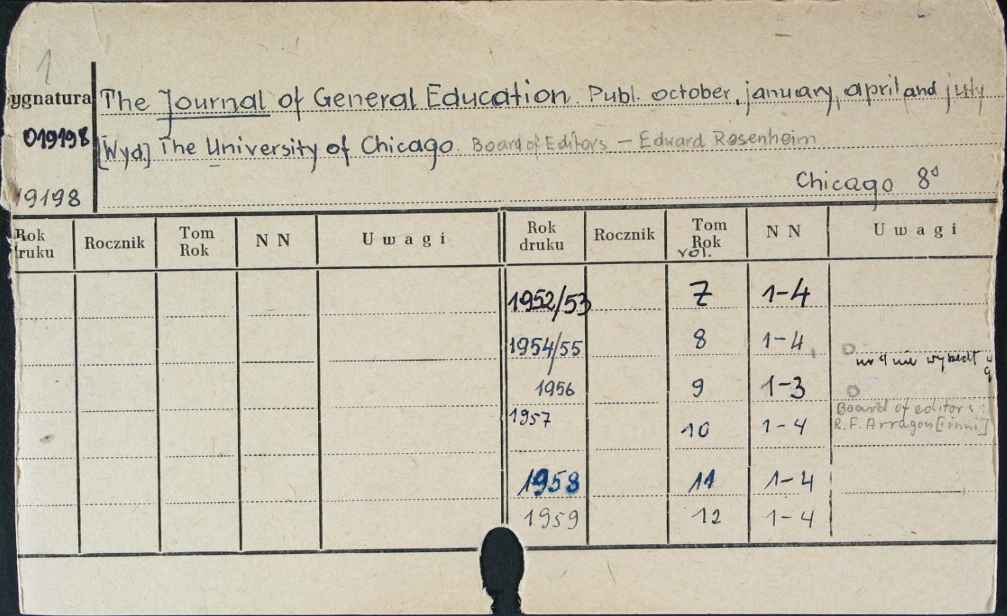 1
ygnatura The Journal of General Education. Publ. october, january, april and july
019198 [Wyd] The University of Chicago. Board of Editors – Edward Rosenheim
19198 Chicago 8°
Rok ruku Rocznik Tom Rok N N Uwagi Rok druku Rocznik Tom Rok vol. N N Uwagi
1952/53 7 1-4
1954/55 8 1-4
nr 4 nie wyszedł
1956 9 1-3
Board of editors:
1957 10 1-4 R.F. Arragon [i inni]
1958 11 1-4
1959 12 1-4